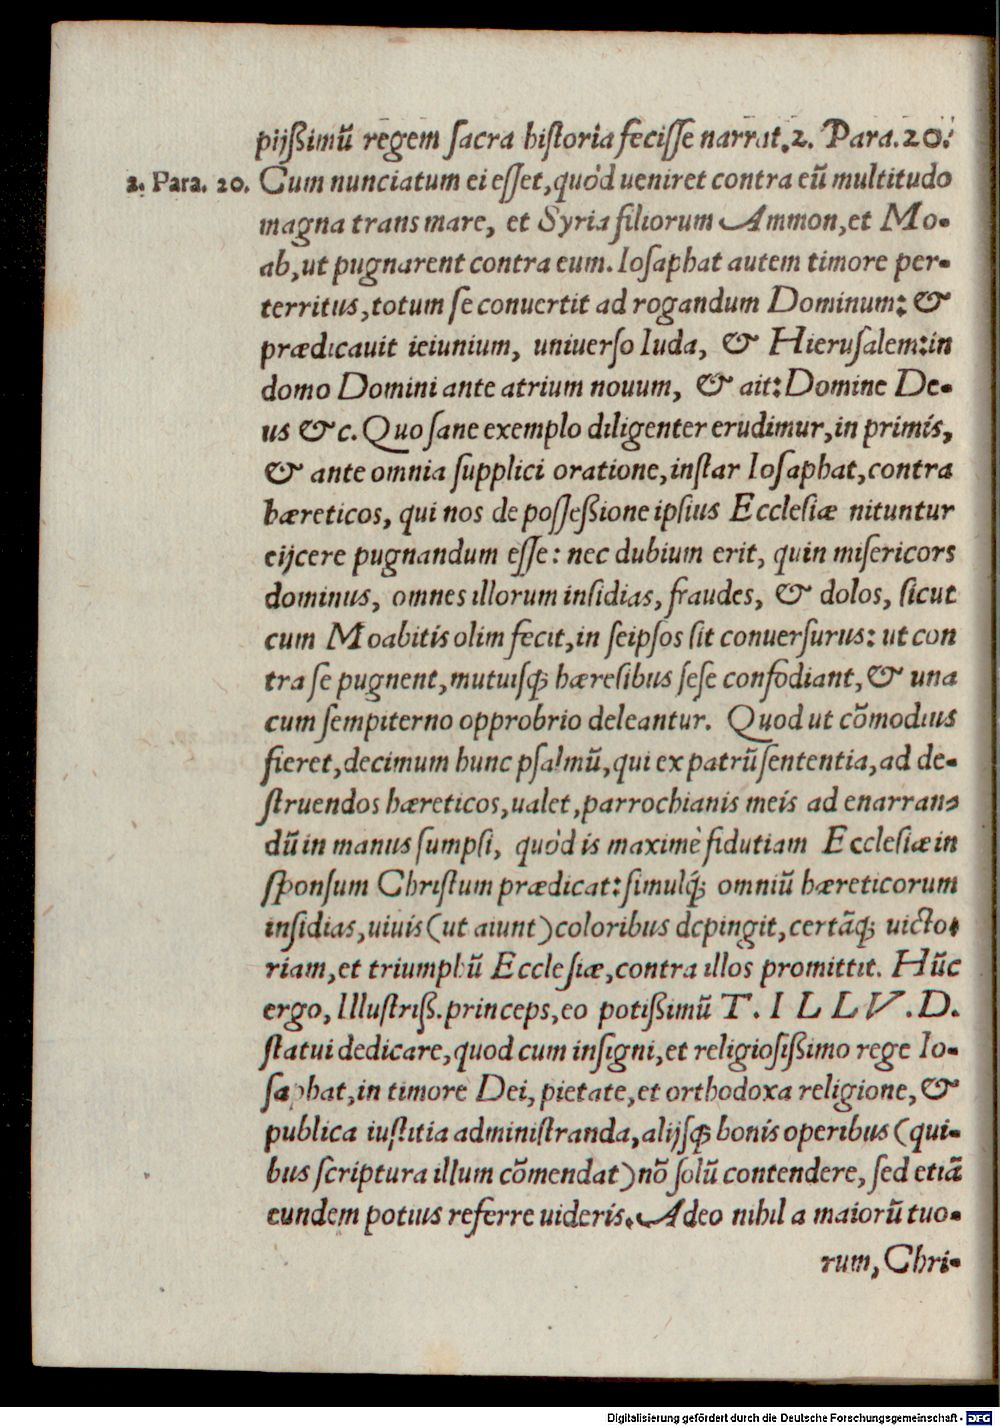 pijßimũ regem ſacra hiſtoria feciſſe narrat. 2. Para. 20.
2. Para. 20. Cum nunciatum ei eſſet, quòd ueniret contra eũ multitudo
magna trans mare, et Syria filiorum Ammon, et Mo-
ab, ut pugnarent contra eum. Ioſaphat autem timore per-
territus, totum ſe conuertit ad rogandum Dominum: &
prædicauit ieiunium, uniuerſo Iuda, & Hieruſalem: in
domo Domini ante atrium nouum, & ait: Domine De-
us &c. Quo ſane exemplo diligenter erudimur, in primis,
& ante omnia ſupplici oratione, inſtar Ioſaphat, contra
hæreticos, qui nos de poſſeßione ipſius Eccleſiæ nituntur
eijcere pugnandum eſſe: nec dubium erit, quin miſericors
dominus, omnes illorum inſidias, fraudes, & dolos, ſicut
cum Moabitis olim fecit, in ſeipſos ſit conuerſurus: ut con
tra ſe pugnent, mutuiſq; hæreſibus ſeſe confodiant, & una
cum ſempiterno opprobrio deleantur. Quod ut cõmodius
fieret, decimum hunc pſalmũ, qui ex patrũ ſententia, ad de-
ſtruendos hæreticos, ualet, parrochianis meis ad enarran-
dũ in manus ſumpſi, quòd is maximè fidutiam Eccleſiæ in
ſponſum Chriſtum prædicat: ſimulq́; omniũ hæreticorum
inſidias, uiuis (ut aiunt) coloribus depingit, certãq; uicto-
riam, et triumphũ Eccleſiæ, contra illos promittit. Hũc
ergo, Illuſtriß. princeps, eo potißimũ T. ILLV. D.
ſtatui dedicare, quod cum inſigni, et religioſißimo rege Io-
ſaphat, in timore Dei, pietate, et orthodoxa religione, &
publica iuſtitia adminiſtranda, alijſq; bonis operibus (qui-
bus ſcriptura illum cõmendat) nõ ſolũ contendere, ſed etiã
eundem potius referre uideris. Adeo nihil a maiorũ tuo-
rum, Chri-
Digitalisierung gefördert durch die Deutsche Forschungsgemeinschaft - DFG